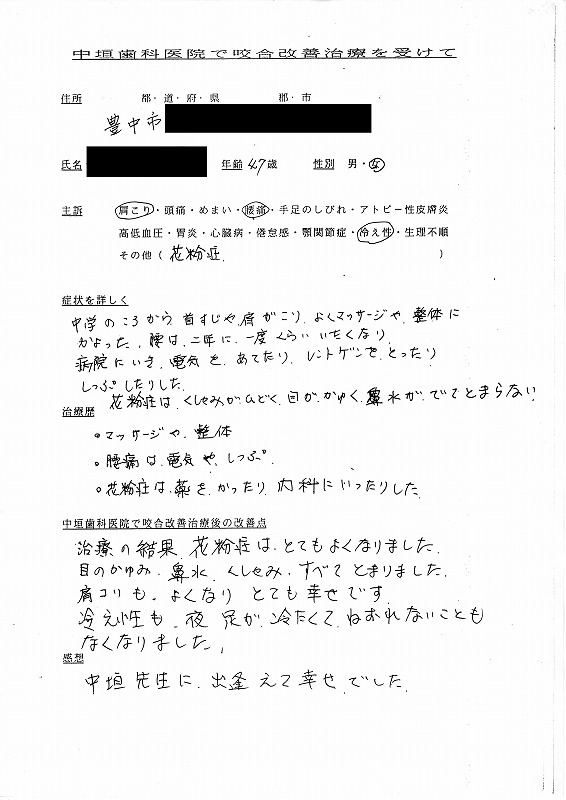 中垣歯科医院で咬合改善治療を受けて
住所 都・道・府・県 郡・市
豊中市
氏名 年齢 47歳 性別 男・女
主訴 肩こり・頭痛・めまい・腰痛・手足のしびれ・アトピー性皮膚炎
高低血圧・胃炎・心臓病・倦怠感・顎関節症・冷え性・生理不順
その他(花粉症 )
症状を詳しく
中学のころから、首すじや、肩がこり、よくマッサージや、整体に
かよった、腰は、二年に、一度くらい いたくなり、
病院にいき、電気を、あてたり、レントゲンで、とったり
しっぷしたりした。
花粉症は、くしゃみが、ひどく、目が、かゆく、鼻水が、でてとまらない
治療歴
。マッサージや、整体
。腰痛は、電気や、しっぷ。
。花粉症は、薬を、かったり、内科にいったりした。
中垣歯科医院で咬合改善治療後の改善点
治療の結果、花粉症は、とてもよくなりました。
目のかゆみ、鼻水、くしゃみ、すべて とまりました。
肩コリも、よくなり とても幸せです。
冷え性も、夜、足が、冷たくて、ねむれないことも
なくなりました。
感想
中垣先生に、出逢えて幸せ、でした。